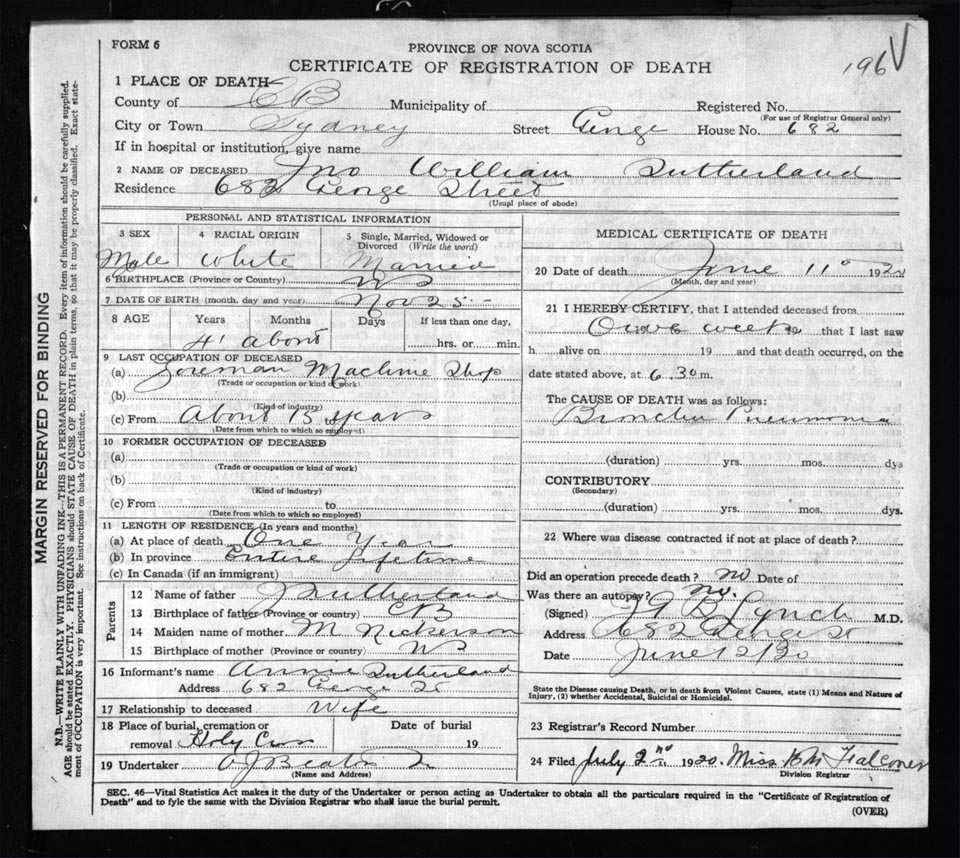 FORM 6
PROVINCE OF NOVA SCOTIA
CERTIFICATE OF REGISTRATION OF DEATH
196 V
1 PLACE OF DEATH
County of CB Municipality of Registered No.
(For use of Registrar General only)
City or Town Sydney Street George House No. 682
If in hospital or institution, give name
2 NAME OF DECEASED Jno William Sutherland
Residence 682 George Street
(Usual place of abode)
PERSONAL AND STATISTICAL INFORMATION
3 SEX 4 RACIAL ORIGIN 5 Single, Married, Widowed or Divorced (Write the word)
Male White Married
6 BIRTHPLACE (Province or Country) NS
7 DATE OF BIRTH (month, day and year) Nov 25
8 AGE Years Months Days If less than one day,
41 about hrs. or min.
9 LAST OCCUPATION OF DECEASED
(a) Foreman Machine Shop
(Trade or occupation or kind of work)
(b)
(Kind of industry)
(c) From About 15 to years
(Date from which to which so employed)
10 FORMER OCCUPATION OF DECEASED
(a)
(Trade or occupation or kind of work)
(b)
(Kind of industry)
(c) From to
(Date from which to which so employed)
11 LENGTH OF RESIDENCE (In years and months)
(a) At place of death One Year
(b) In province Entire Lifetime
(c) In Canada (if an immigrant)
Parents
12 Name of father J Sutherland
13 Birthplace of father (Province or country) CB
14 Maiden name of mother M Nickerson
15 Birthplace of mother (Province or country) NS
16 Informant's name Annie Sutherland
Address 682 George St
17 Relationship to deceased Wife
18 Place of burial, cremation or removal Holy Cross Date of burial 19
19 Undertaker A J Beaton
(Name and Address)
MEDICAL CERTIFICATE OF DEATH
20 Date of death June 11 192
(Month, day and year)
21 I HEREBY CERTIFY, that I attended deceased from
One week that I last saw
h alive on 19 and that death occurred, on the
date stated above, at 6.30 m.
The CAUSE OF DEATH was as follows:
Broncho Pneumonia
(duration) yrs. mos. dys
CONTRIBUTORY
(Secondary)
(duration) yrs. mos. dys.
22 Where was disease contracted if not at place of death?
Did an operation precede death? no Date of
Was there an autopsy? no.
(Signed) J G B Lynch M.D.
Address 682 George St
Date June 12/20
State the Disease causing Death, or in death from Violent Causes, state (1) Means and Nature of
Injury, (2) whether Accidental, Suicidal or Homicidal.
23 Registrar's Record Number
24 Filed July 2nd 1920. Miss K M Falconer
Division Registrar
SEC. 46—Vital Statistics Act makes it the duty of the Undertaker or person acting as Undertaker to obtain all the particulars required in the "Certificate of Registration of
Death" and to fyle the same with the Division Registrar who shall issue the burial permit.
(OVER)
MARGIN RESERVED FOR BINDING
N.B.—WRITE PLAINLY WITH UNFADING INK—THIS IS A PERMANENT RECORD. Every item of information should be carefully supplied.
AGE should be stated EXACTLY. PHYSICIANS should STATE CAUSE OF DEATH in plain terms, so that it may be properly classified. Exact state-
ment of OCCUPATION is very important. See instructions on back of Certificate.